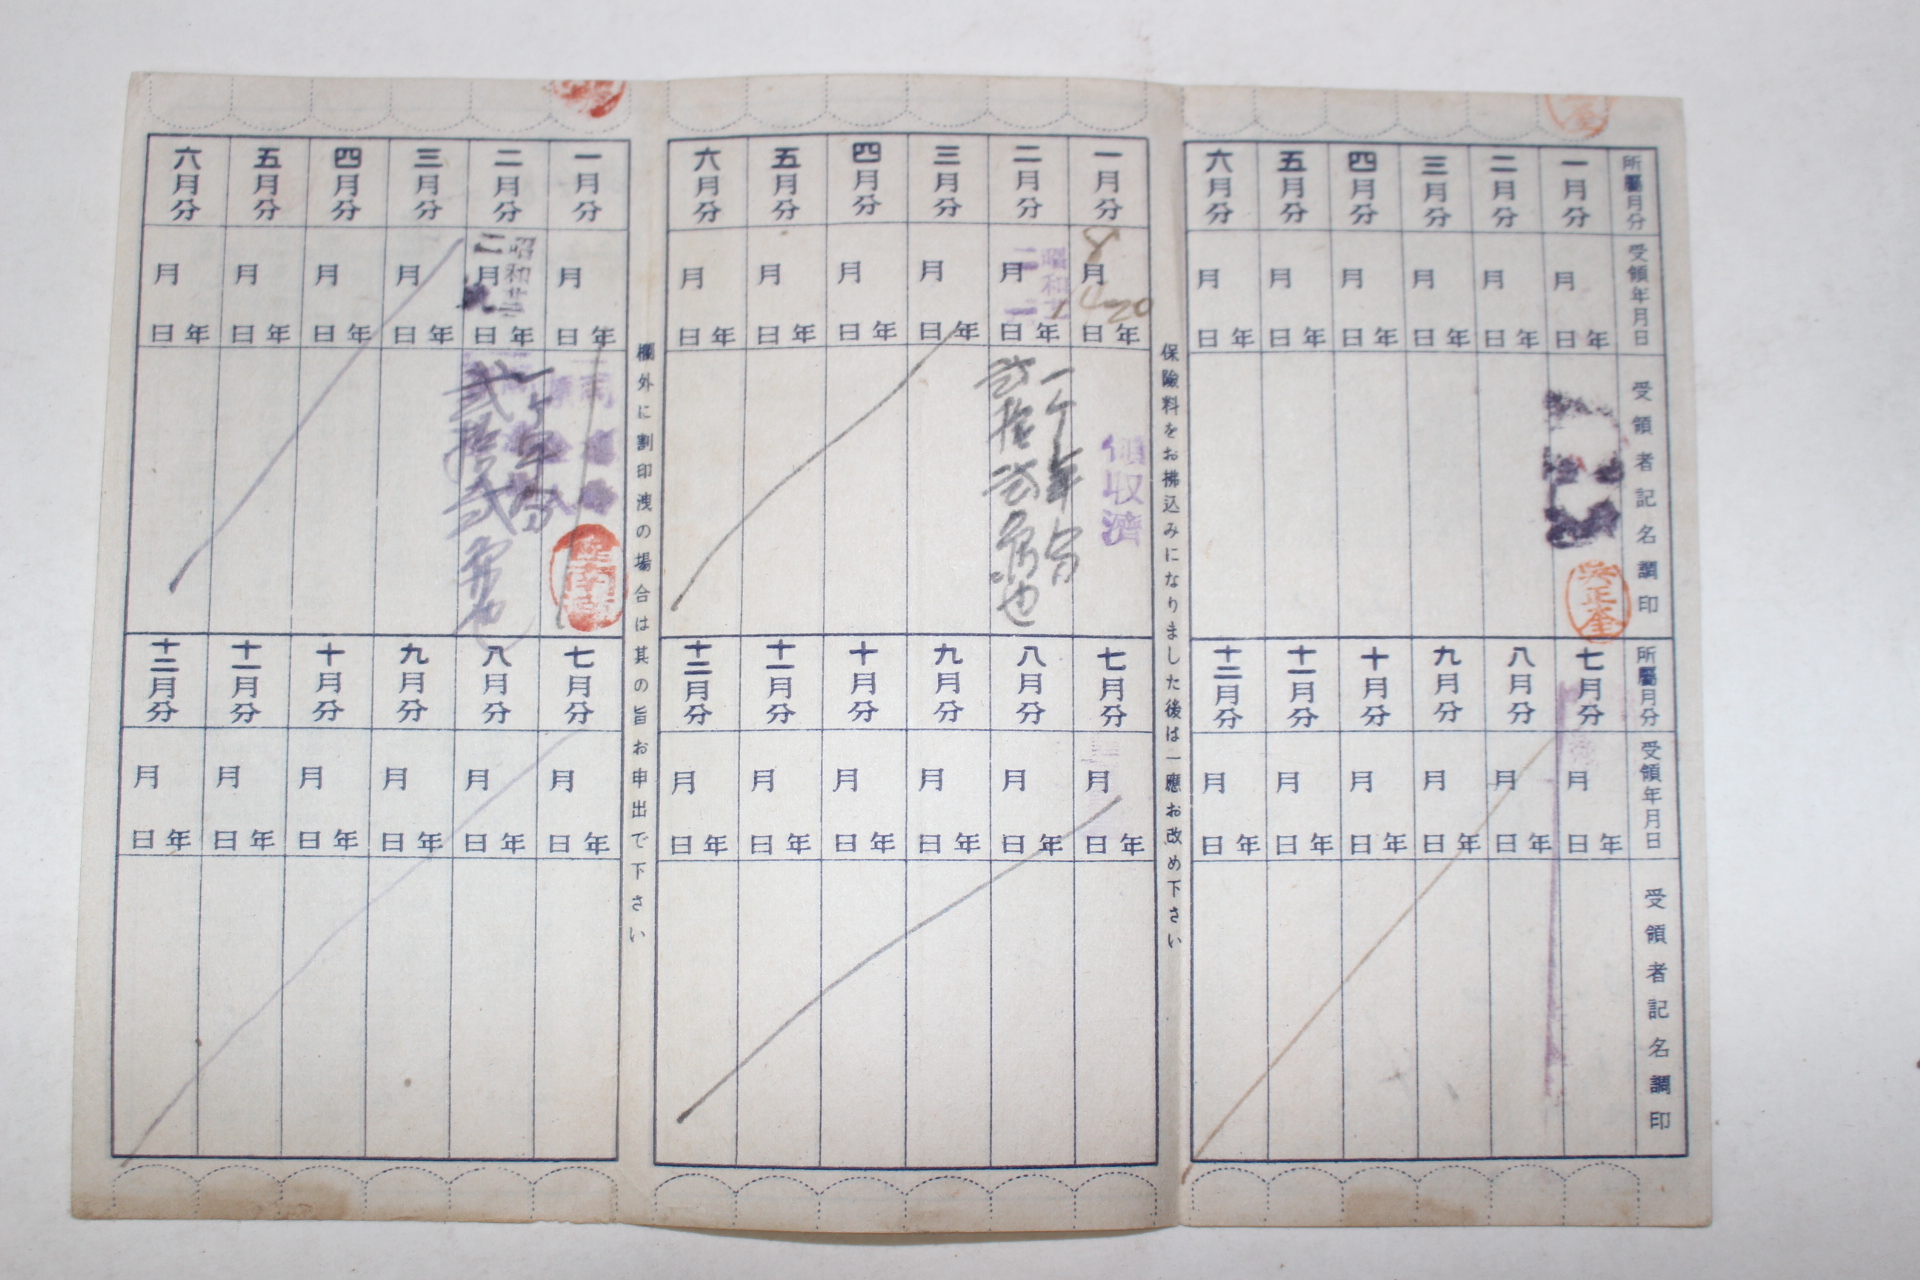 所屬月分
一月分
二月分
三月分
四月分
五月分
六月分
受領年月日
年月日
年月日
年月日
年月日
年月日
年月日
受領者記名調印
所屬月分
七月分
八月分
九月分
十月分
十一月分
十二月分
受領年月日
年月日
年月日
年月日
年月日
年月日
年月日
受領者記名調印
保險料をお拂込みになりました後は一應お改め下さい
一月分
二月分
三月分
四月分
五月分
六月分
年月日
昭和
年月日
年月日
年月日
年月日
年月日
領収濟
一ヶ年分
弐拾弐円也
七月分
八月分
九月分
十月分
十一月分
十二月分
年月日
年月日
年月日
年月日
年月日
年月日
欄外に割印洩の場合は其の旨お申出で下さい
一月分
二月分
三月分
四月分
五月分
六月分
年月日
昭和
年月日
年月日
年月日
年月日
年月日
一ヶ年分
弐拾弐円也
七月分
八月分
九月分
十月分
十一月分
十二月分
年月日
年月日
年月日
年月日
年月日
年月日